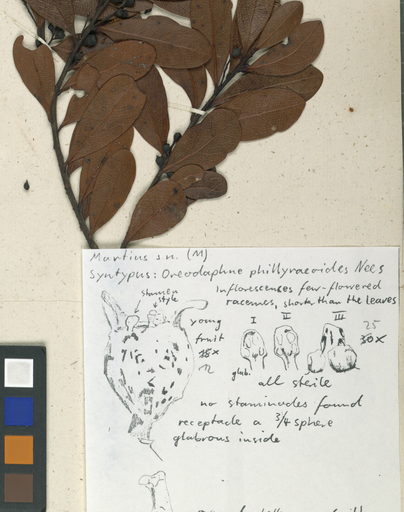 Martius s.n. (M)
Syntypus: Oreodaphne phillyraeoides Nees
Inflorescences few-flowered
racemes, shorter than the leaves
stamen
style
young
fruit
I II III
25
30x
glab.
all sterile
no staminodes found
receptacle a 3/4 sphere
glabrous inside